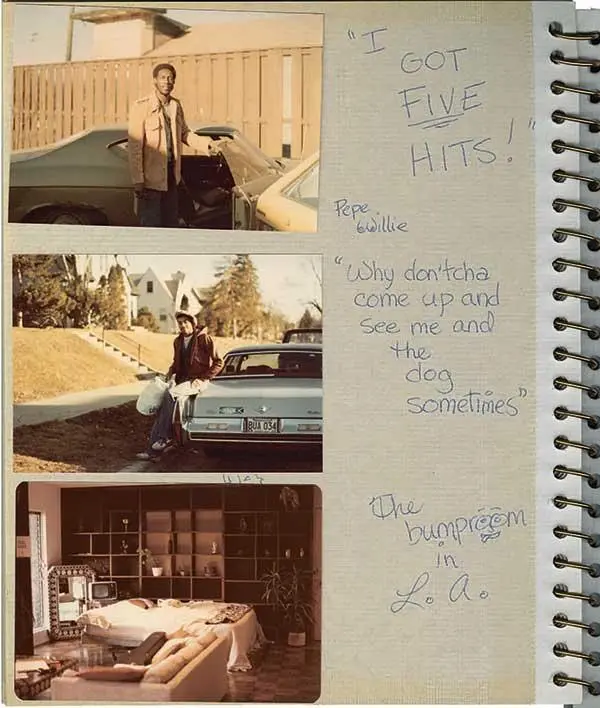 "I
GOT
FIVE
HITS!"
Pepe
Willie
"Why don'tcha
come up and
see me and
the
dog
sometimes"
BUA 034
The
bumproom
in
L. A.